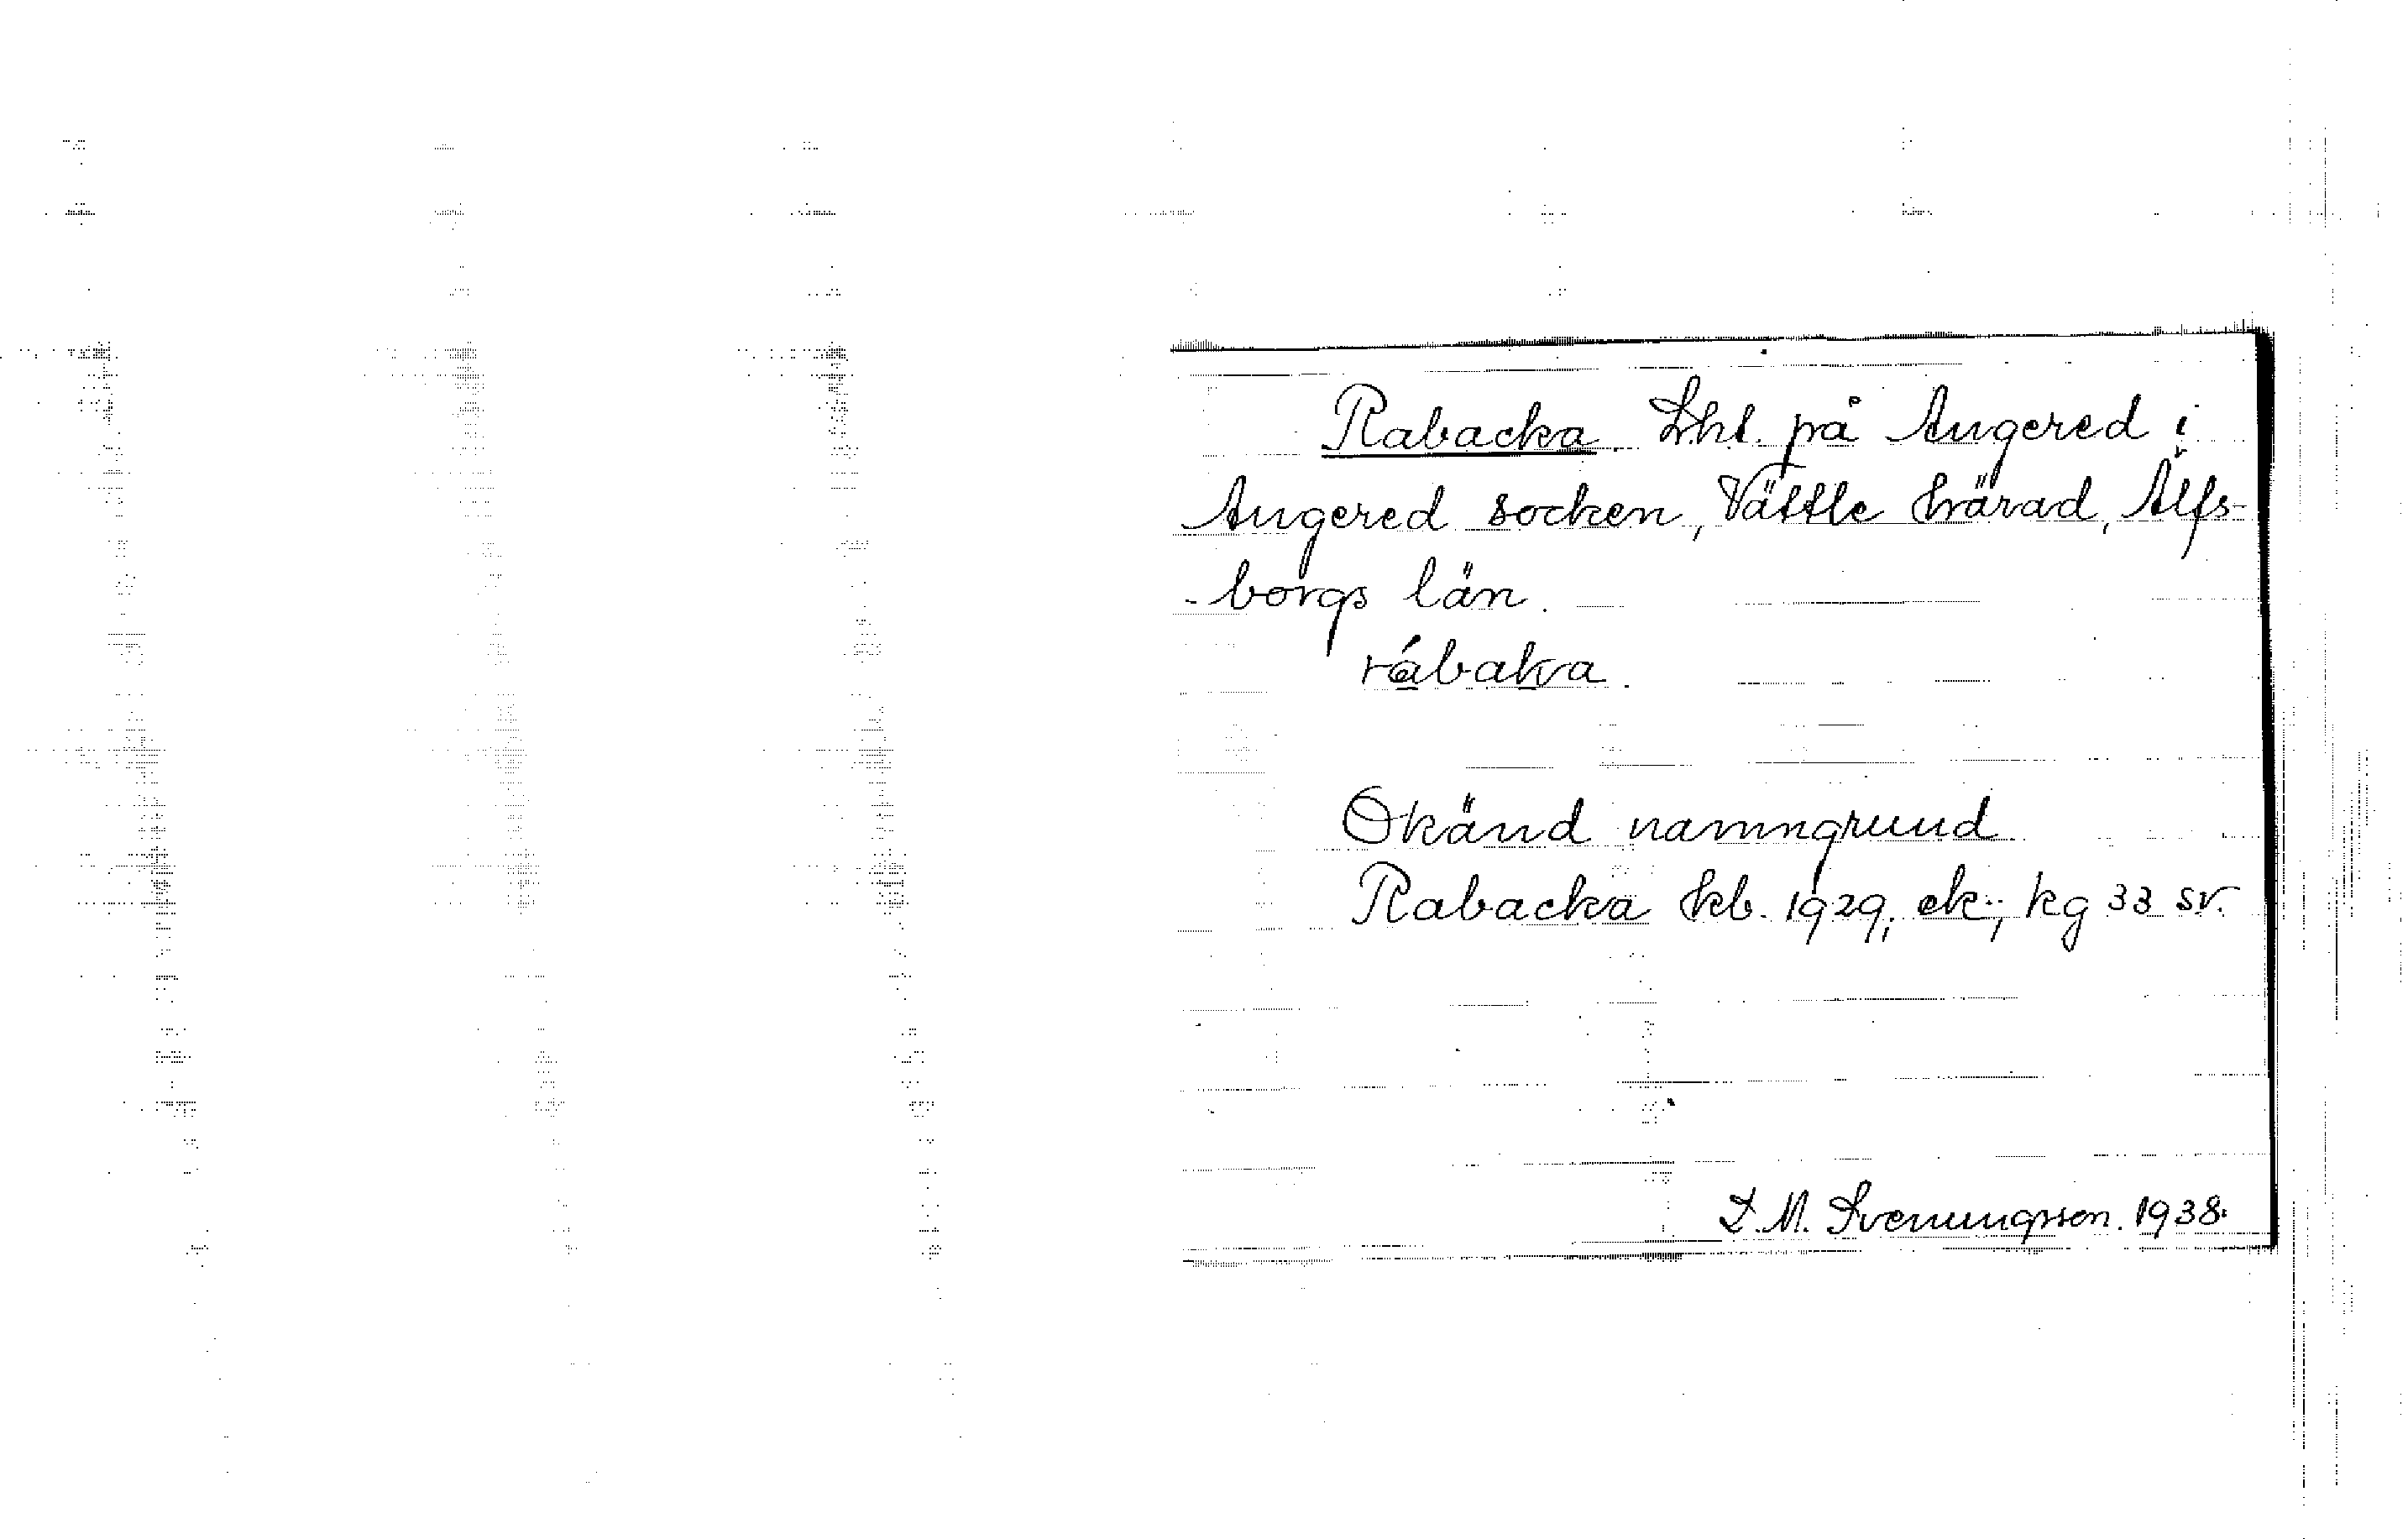 Rabacka. Lht. på Angered i
Angered socken, Vättle härad, Älfs-
-borgs län.
rábakra.
Okänd namngrund
Rabacka kb. 1929, ek.; kg 33 sv.
I. M. Svenungsson. 1938.